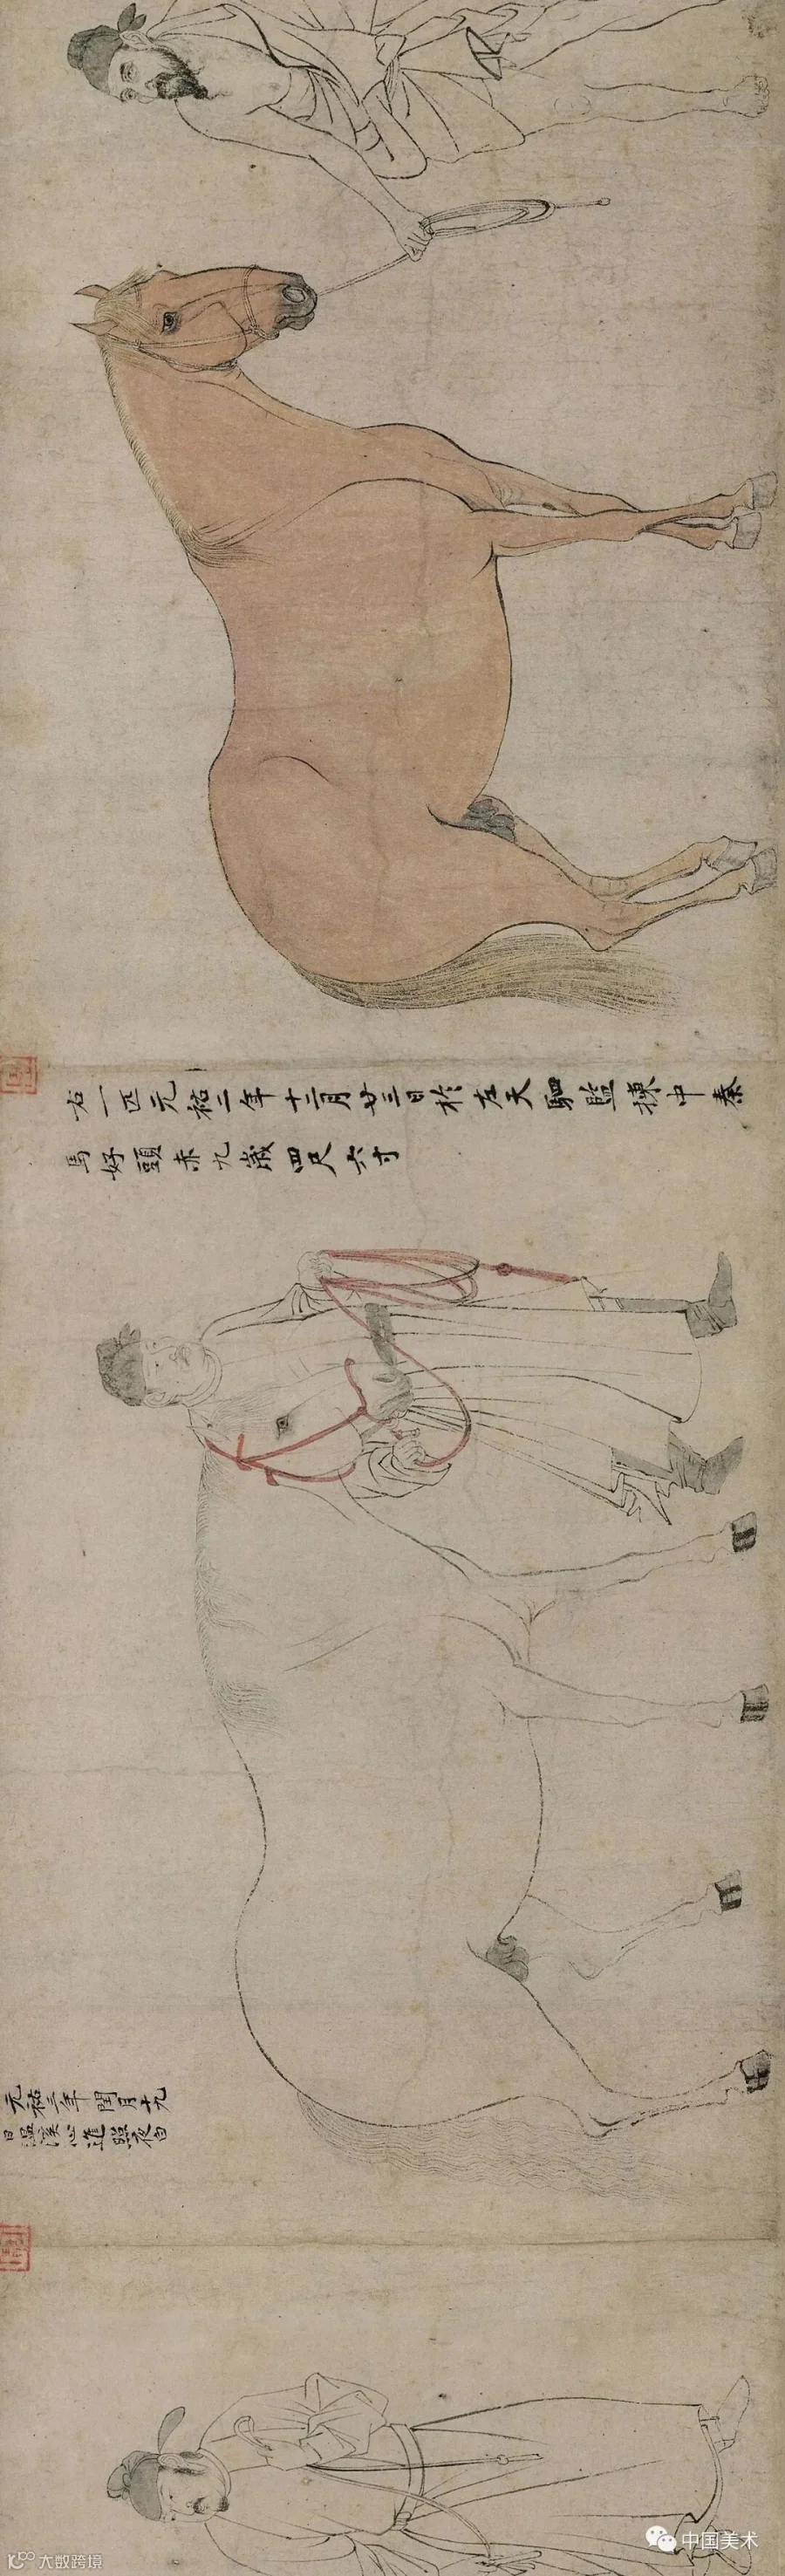 右一匹元祐二年十二月廿三日於左天駟監揀中秦
馬好頭赤九歲四尺六寸
元祐三年閏月十九
日溫溪心進照夜白
中国美术
大数跨境